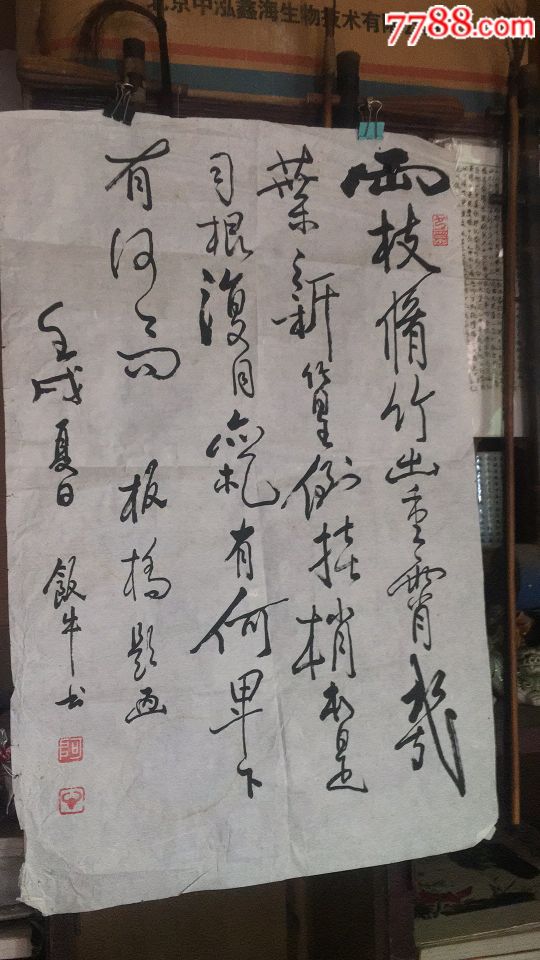 7788.com
北京中泓鑫海生物技术有限
兩枝脩竹出重霄幾
葉新篁倒挂梢本是
同根復同氣有何卑下
有何高 板橋题画
壬戌夏日 飯牛书